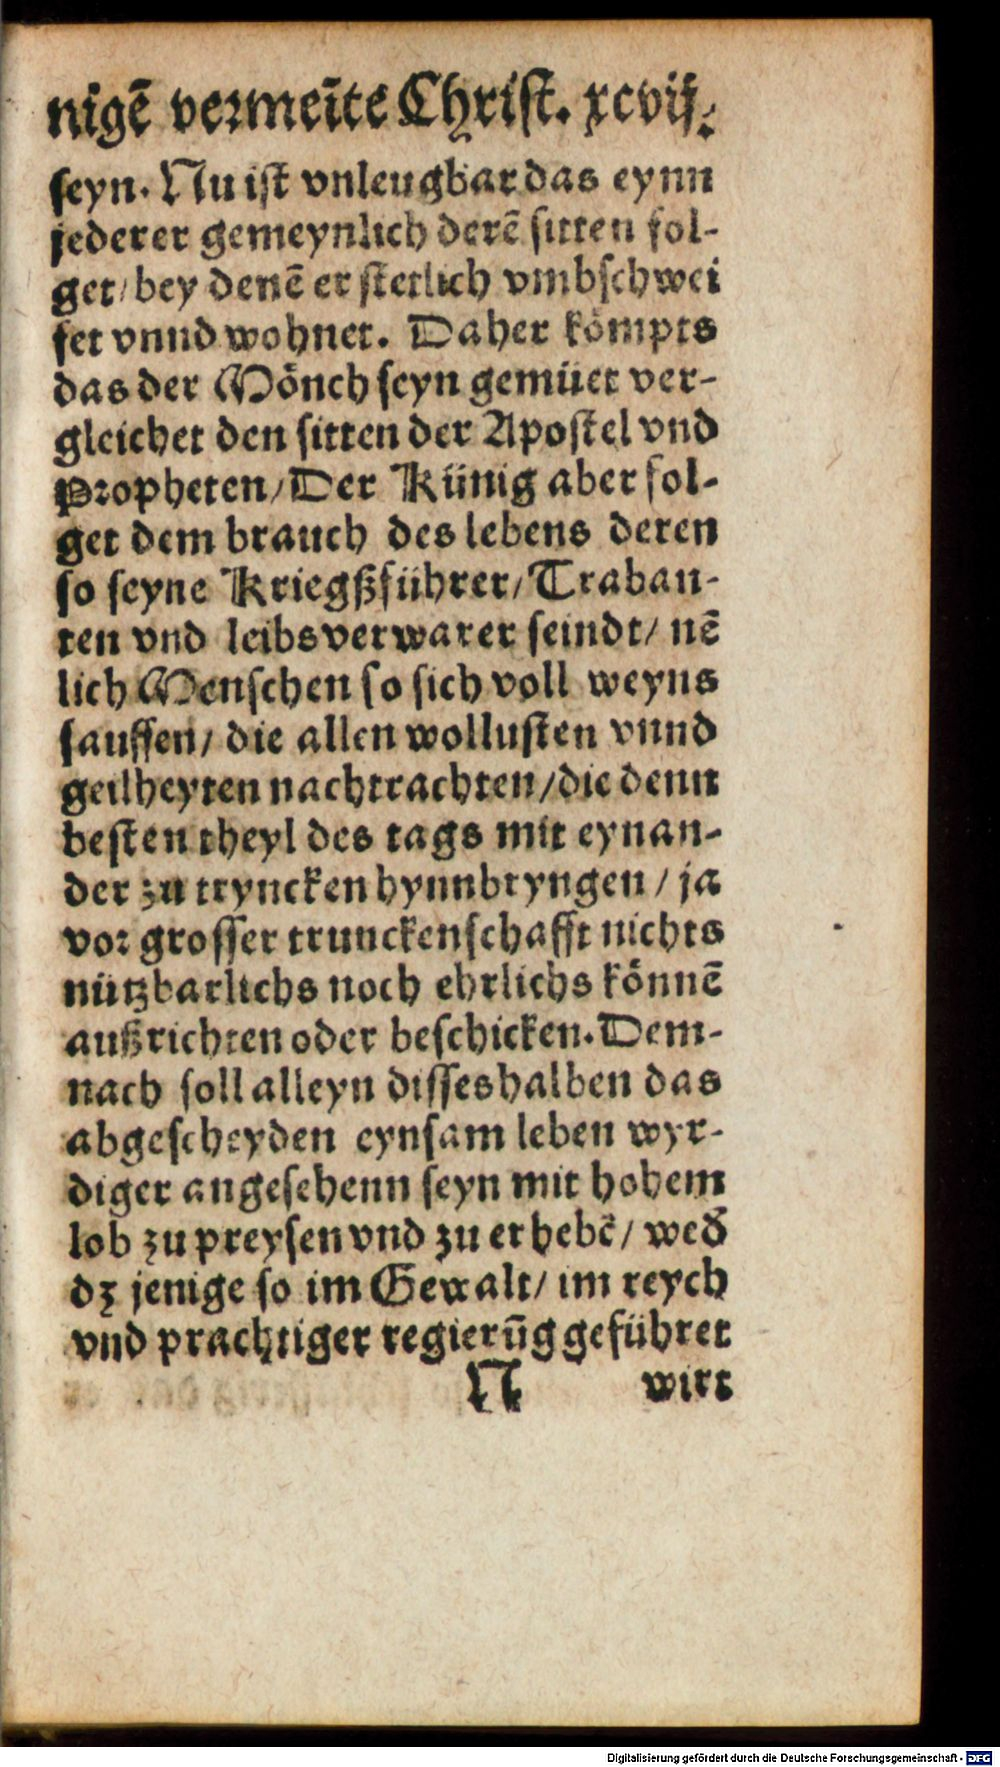 nigē vermeīte Christ. xcvij.
seyn. Nu ist vnleugbar das eynn
jederer gemeynlich derē sitten fol-
get/ bey denē er stetlich vmbschwei
fet vnnd wohnet. Daher kömpts
das der Mönch seyn gemüet ver-
gleichet den sitten der Apostel vnd
Propheten/ Der Künig aber fol-
get dem brauch des lebens deren
so seyne Kriegßführer/ Traban-
ten vnd leibsverwarer seindt/ nē
lich Menschen so sich voll weyns
sauffen/ die allen wollusten vnnd
geilheyten nachtrachten/ die denn
besten theyl des tags mit eynan-
der zu tryncken hynnbryngen/ ja
vor grosser trunckenschafft nichts
nützbarlichs noch ehrlichs könnē
außrichten oder beschicken. Dem-
nach soll alleyn disseshalben das
abgescheyden eynsam leben wyr-
diger angesehenn seyn mit hohem
lob zu preysen vnd zu erhebē/ wed̄
dz jenige so im Gewalt/ im reych
vnd prachtiger regierūg geführet
N wirt
Digitalisierung gefördert durch die Deutsche Forschungsgemeinschaft - DFG